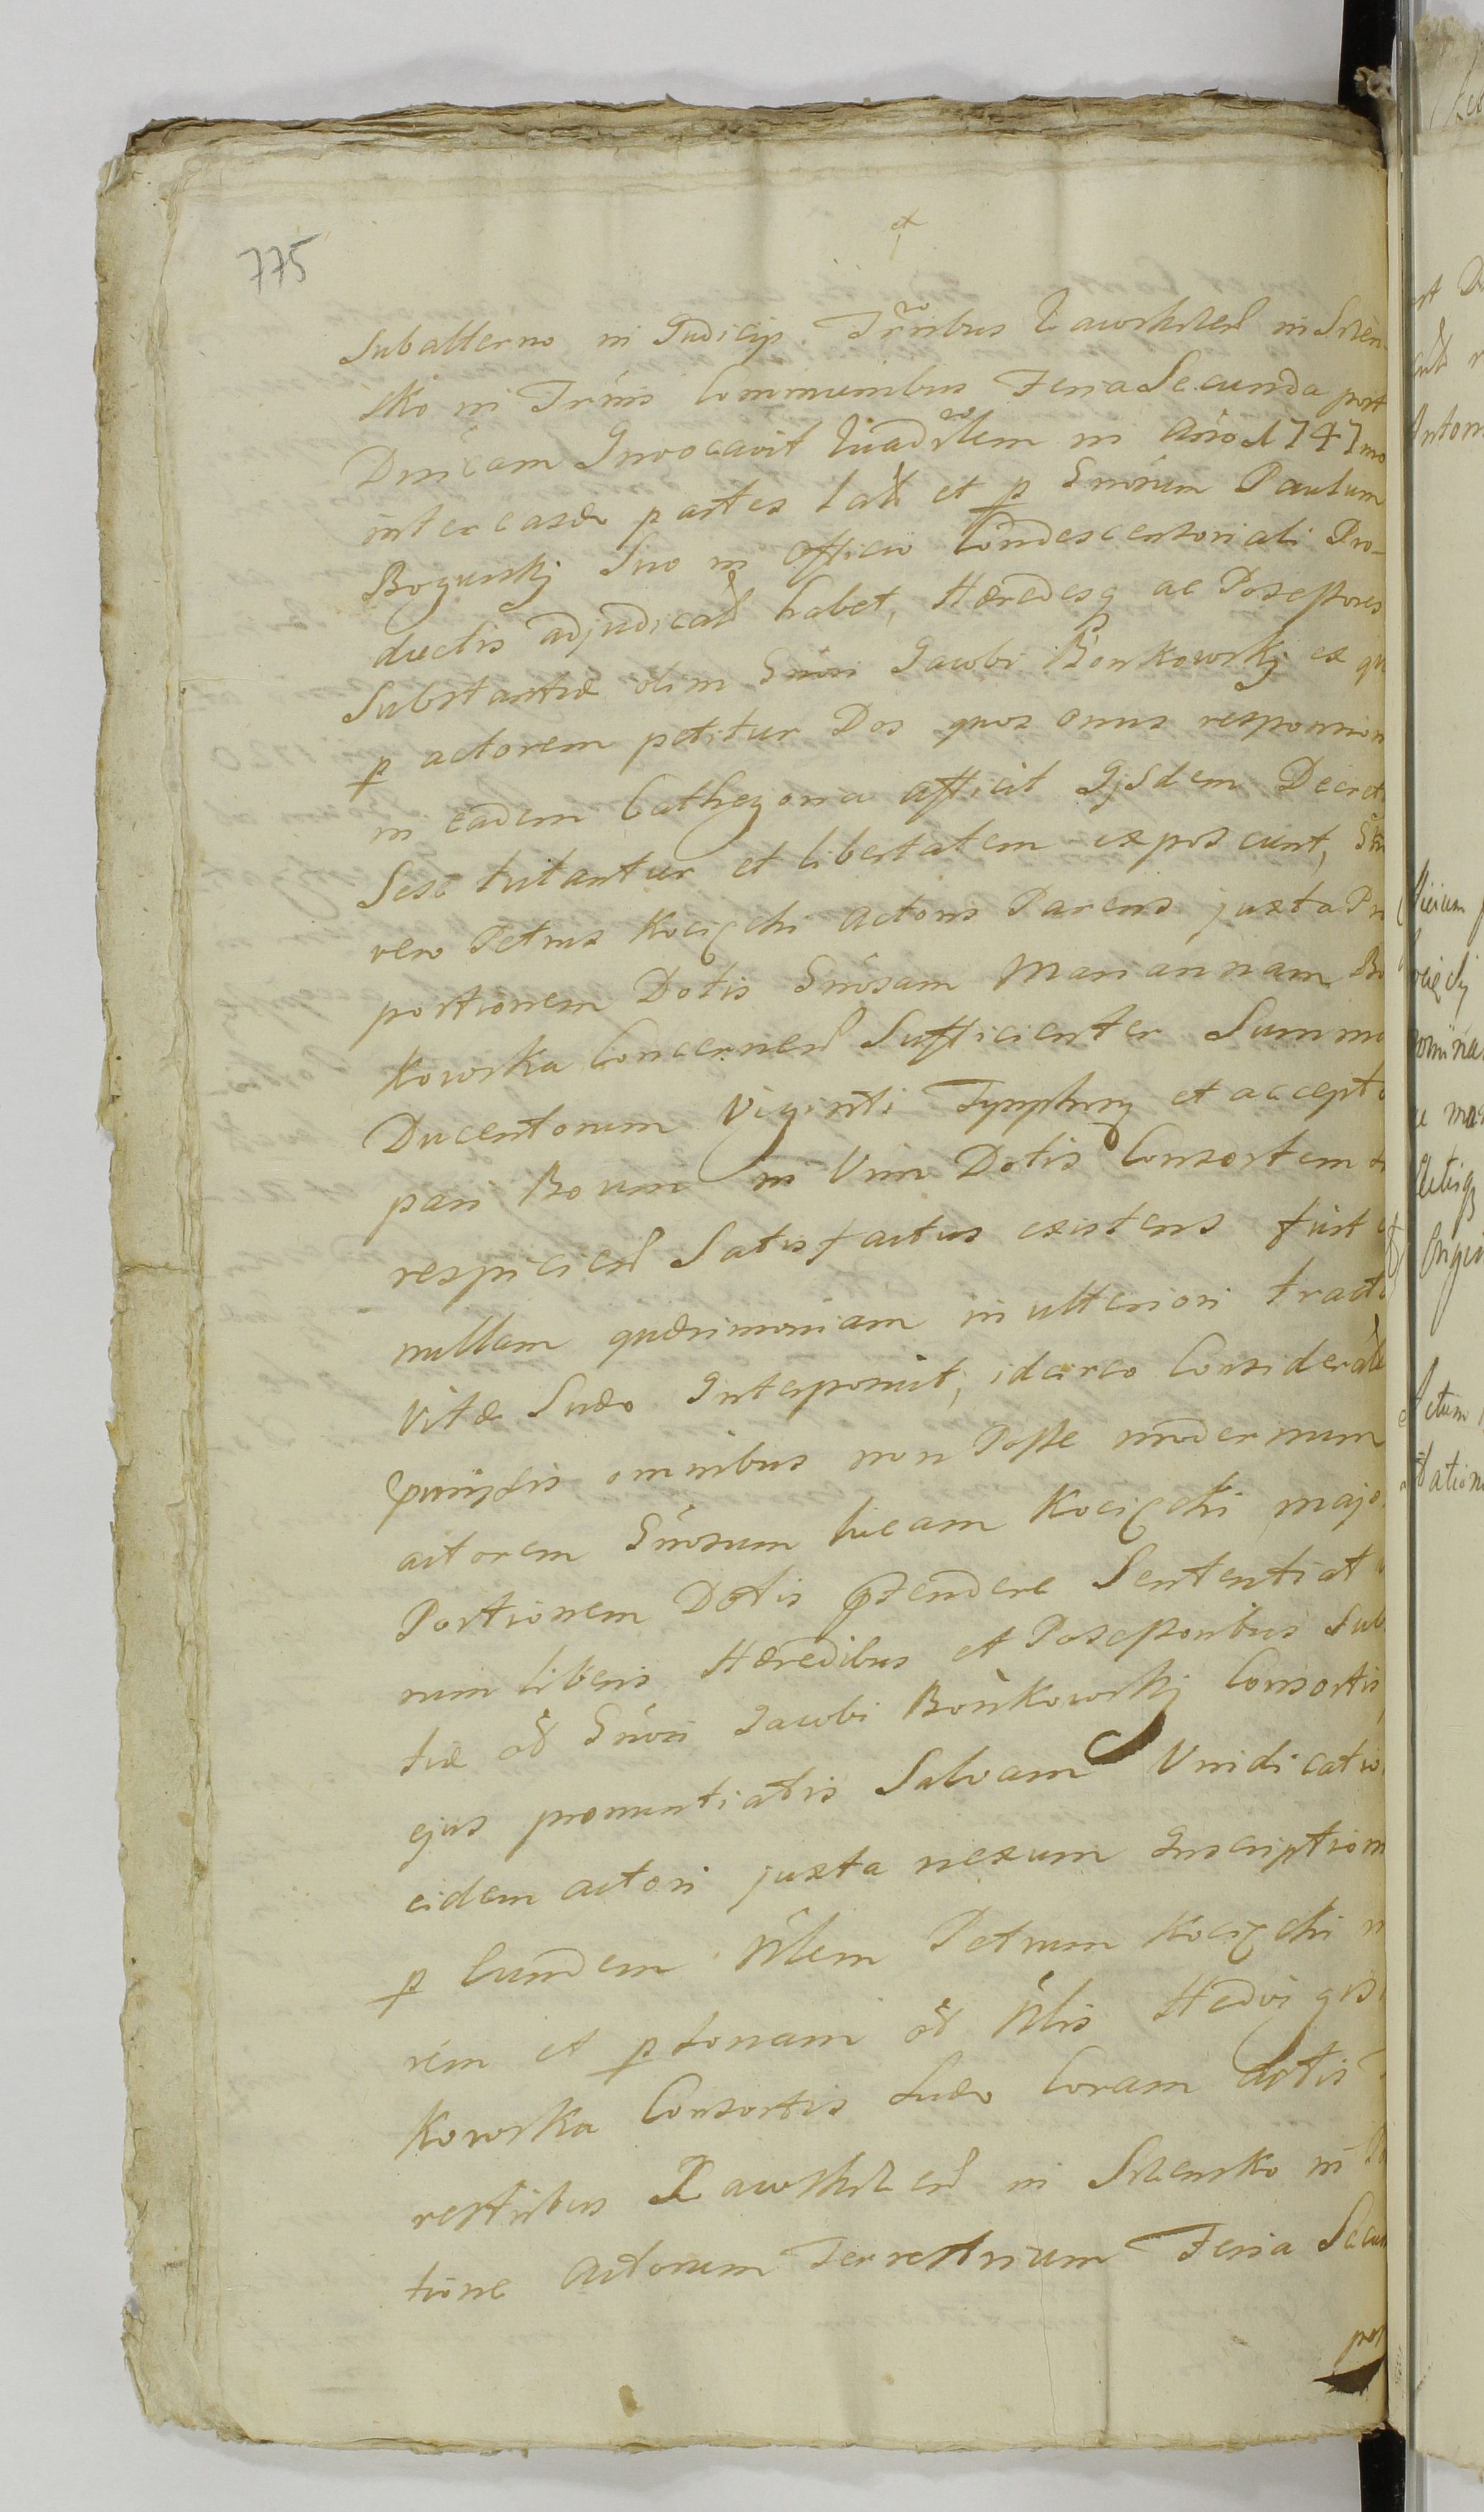 775
et
Subalterno in Judicijs Trribus Zawskrzen in Srzen-
sko in Trinis Communibus Feria Secunda post
Dnicam Invocavit Quadrlem in Ano 1747mo
inter easde partes lat et p Gnosum Paulum
Bogurskj Suo in Officio Condescensoriali Pro-
ductis adjudicat habet, Hæredesq ac Possessores
Substantiæ olim Gnosi Jacobi Bonkowskj ex qu
p actorem petitur Dos quos onus responsion
in eadem Cathegoria afficit Ijsdem Decret
Sese tutantur et libertatem exposcunt,
vero Petrus Kocięcki actoris Parens juxta Pro
portionem Dotis Gnosam Mariannam Bo
kowska Concernen Sufficienter Summa
Ducentorum Viginti Tymphorum et accepto
pari Boum in Vim Dotis Consortem
respicien Satisfactus existens fuit
nullam quærimoniam in ulteriori tractu
Vitæ Suæ Interposuit, idcirco Considerat
præmissis omnibus non Posse modernum
actorem Gnosum Lucam Kocięcki major
Portionem Dotis prætendere Sententiat
rum liberis Hæredibus et Possessoribus Sub
tiæ od Gnosi Jacobi Bonkowskj Consortis
ejus pronuntiatis Salvam Vindicatio
eidem actori juxta nexum Inscription
p Eundem Nblem Petrum Kocięcki
rem et p sonam od Nblis Hedvigis
kowska Consortis Suæ Coram actis
restribus Zawskrzen in Srzensko in
tione actorum Terrestrium Feria Secun
post